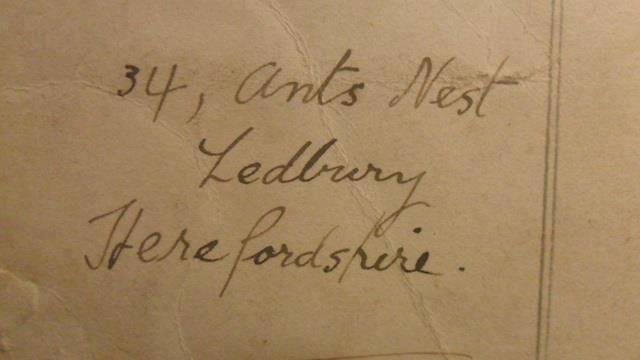 34, Ants Nest
Ledbury
Herefordshire.